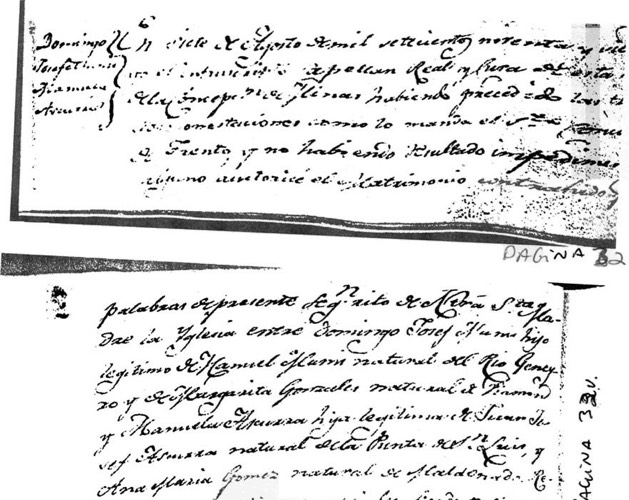 Domingo
Josef
Manuela
Ascurra
En siete de Agosto de mil setecientos noventa y
to el infrascripto Capellan Real y Cura de esta
de la Concepn. de Minas habiendo precedido las tr
monestaciones como lo manda el Sto.
de Trento, y no habiendo resultado impedimen
alguno autoricé el Matrimonio contrahido p
PAGINA 32
palabras de presente segn. rito de Ntra. Sta. Ma-
dre la Yglesia entre Domingo Josef Nuni hijo
legitimo de Manuel Nuni natural del Rio Geney
ro y de Margarita Gonzales natural de
y Manuela Ascurra hija legitima de Juan Jo
sef Ascurra natural de la Punta de Sn. Luis, y
Ana Maria Gomez natural de Maldonado.
PAGINA 32v.